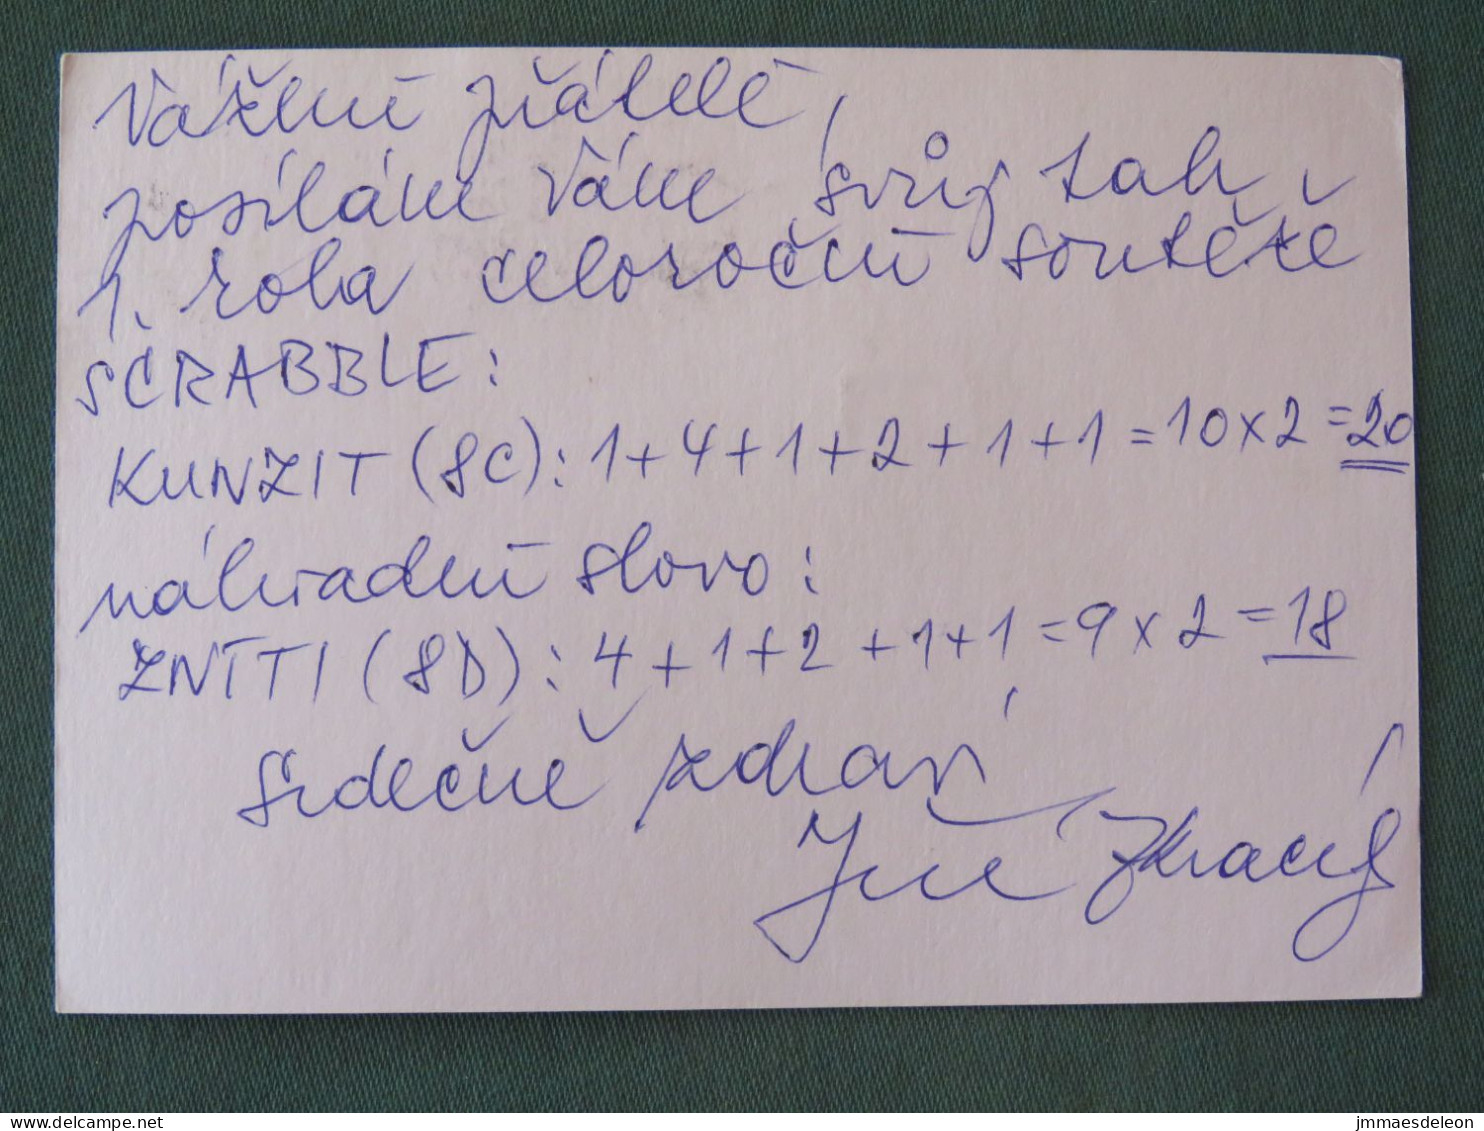 Vážení přátelé,
posílám Vám svůj tah
1. kola celoroční soutěže
SCRABBLE:
KUNZIT (8C): 1+4+1+2+1+1=10x2=20
náhradní slovo:
ZNÍTI (8D): 4+1+2+1+1=9x2=18
Srdečně zdraví
Jiří
jmmaesdeleon